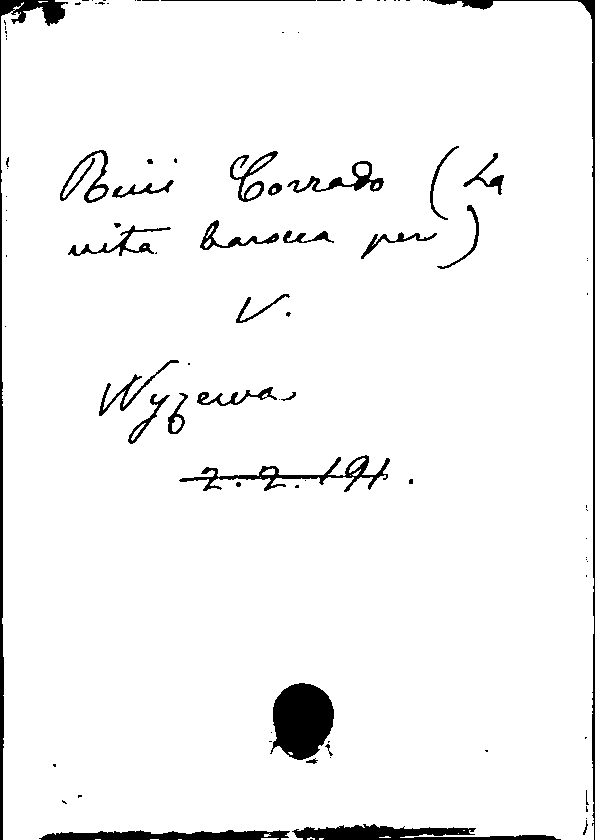 Ricci Corrado (La
vita barocca per)
V.
Wyzewa
2.2.191.